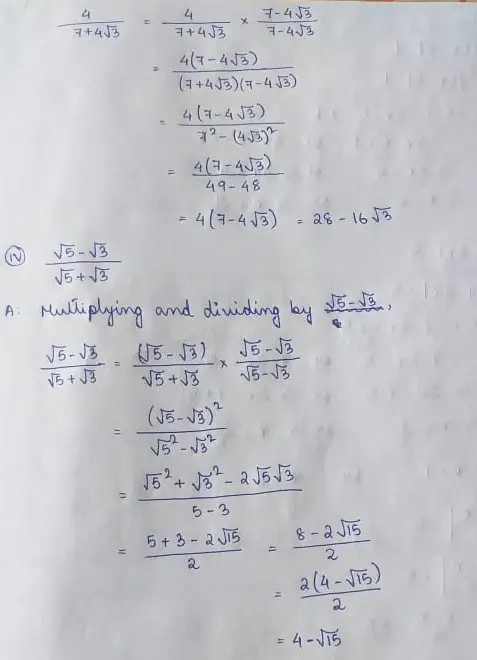 4/(7+4√3) = 4/(7+4√3) × (7-4√3)/(7-4√3)
= 4(7-4√3)/((7+4√3)(7-4√3))
= 4(7-4√3)/(7² - (4√3)²)
= 4(7-4√3)/(49-48)
= 4(7-4√3) = 28-16√3
(iv) (√5-√3)/(√5+√3)
A: Multiplying and dividing by √5-√3,
(√5-√3)/(√5+√3) = (√5-√3)/(√5+√3) × (√5-√3)/(√5-√3)
= (√5-√3)²/(√5²-√3²)
= (√5²+√3²-2√5√3)/(5-3)
= (5+3-2√15)/2 = (8-2√15)/2
= 2(4-√15)/2
= 4-√15